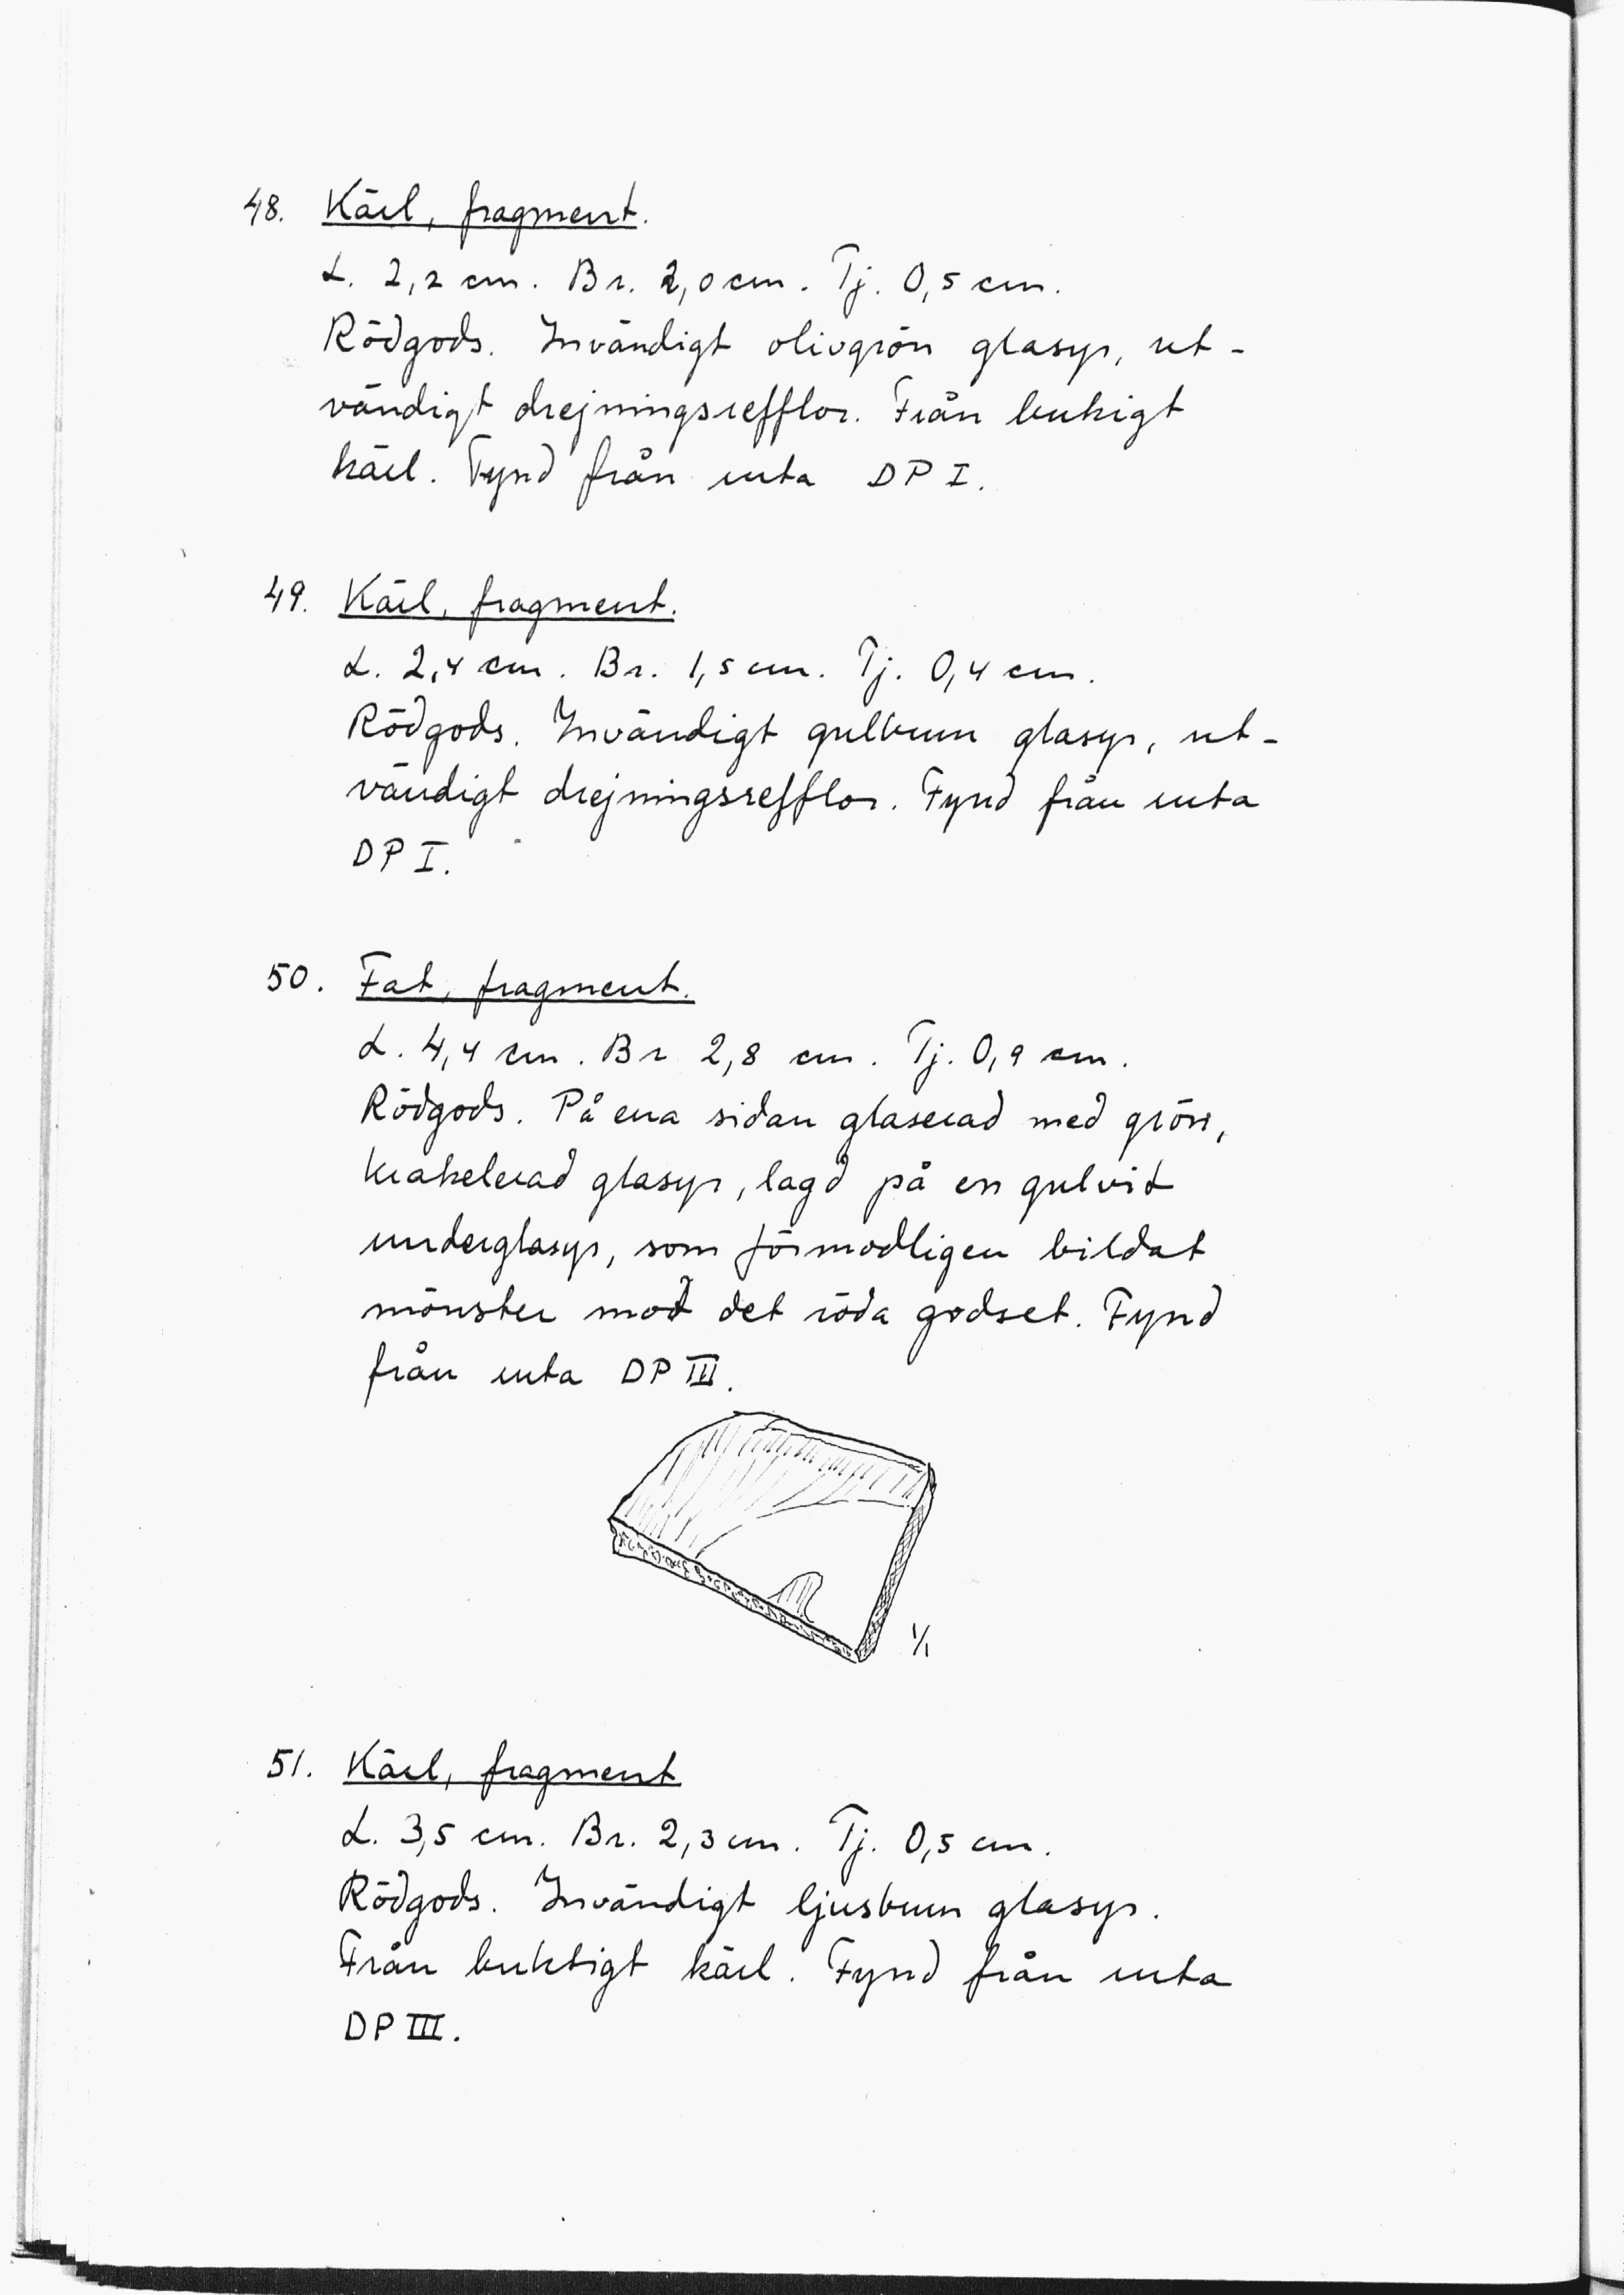 48. Kärl, fragment.
L. 2,2 cm. Br. 2,0 cm. Tj. 0,5 cm.
Rödgods. Invändigt olivgrön glasyr, ut-
vändigt drejningsrefflor. Från bukigt
kärl. Fynd från ruta DP I.
49. Kärl, fragment.
L. 2,4 cm. Br. 1,5 cm. Tj. 0,4 cm.
Rödgods. Invändigt gulbrun glasyr, ut-
vändigt drejningsrefflor. Fynd från ruta
DP I.
50. Fat, fragment.
L. 4,4 cm. Br 2,8 cm. Tj. 0,9 cm.
Rödgods. På ena sidan glaserad med grön,
krakelerad glasyr, lagd på en gulvit
underglasyr, som förmodligen bildat
mönster mot det röda godset. Fynd
från ruta DP III.
1/1
51. Kärl, fragment
L. 3,5 cm. Br. 2,3 cm. Tj. 0,5 cm.
Rödgods. Invändigt ljusbrun glasyr.
Från buktigt kärl. Fynd från ruta
DP III.